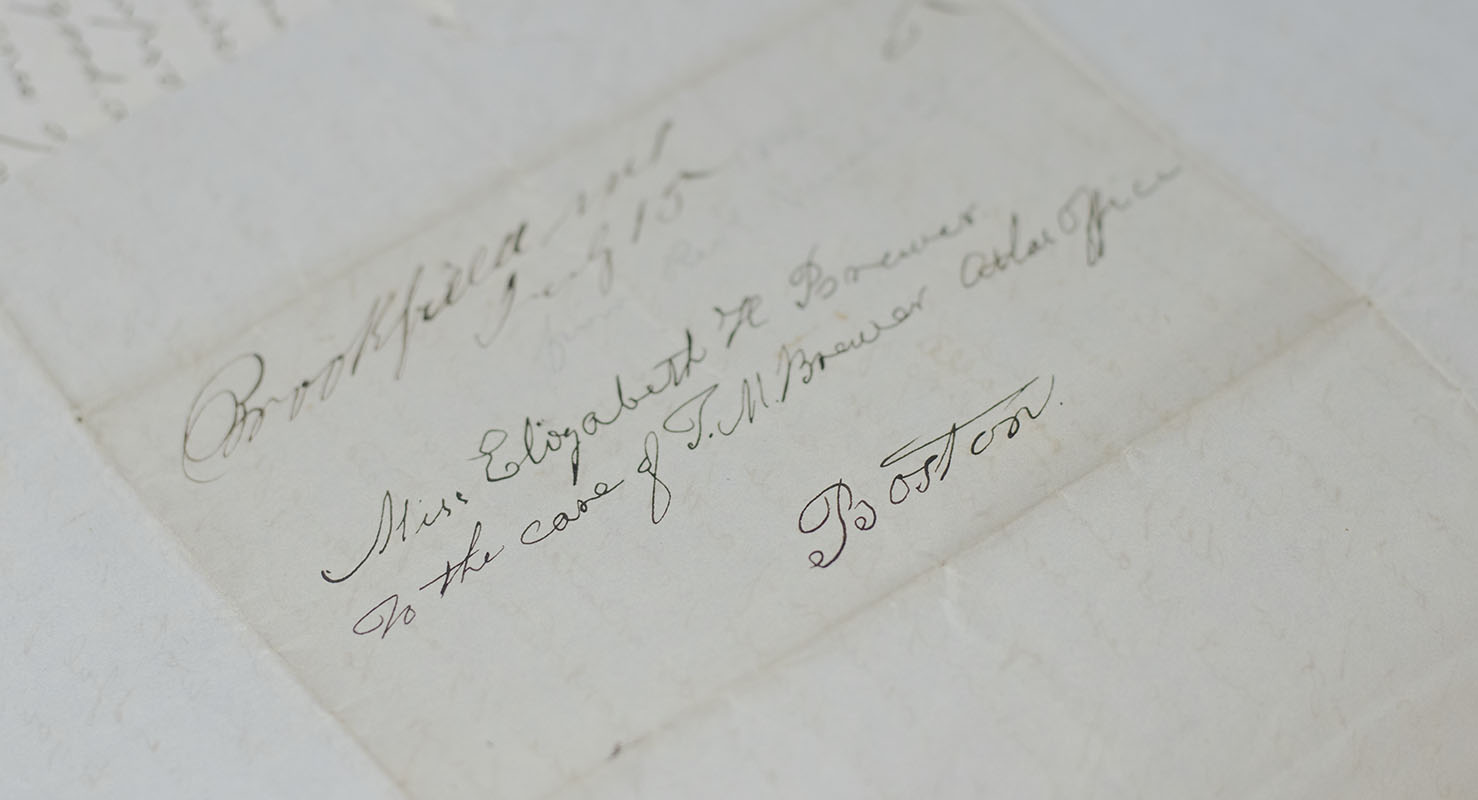 Brookfield
July 15
Miss Elizabeth H Brewer
To the care of T. M. Brewer Atlas Office
Boston.